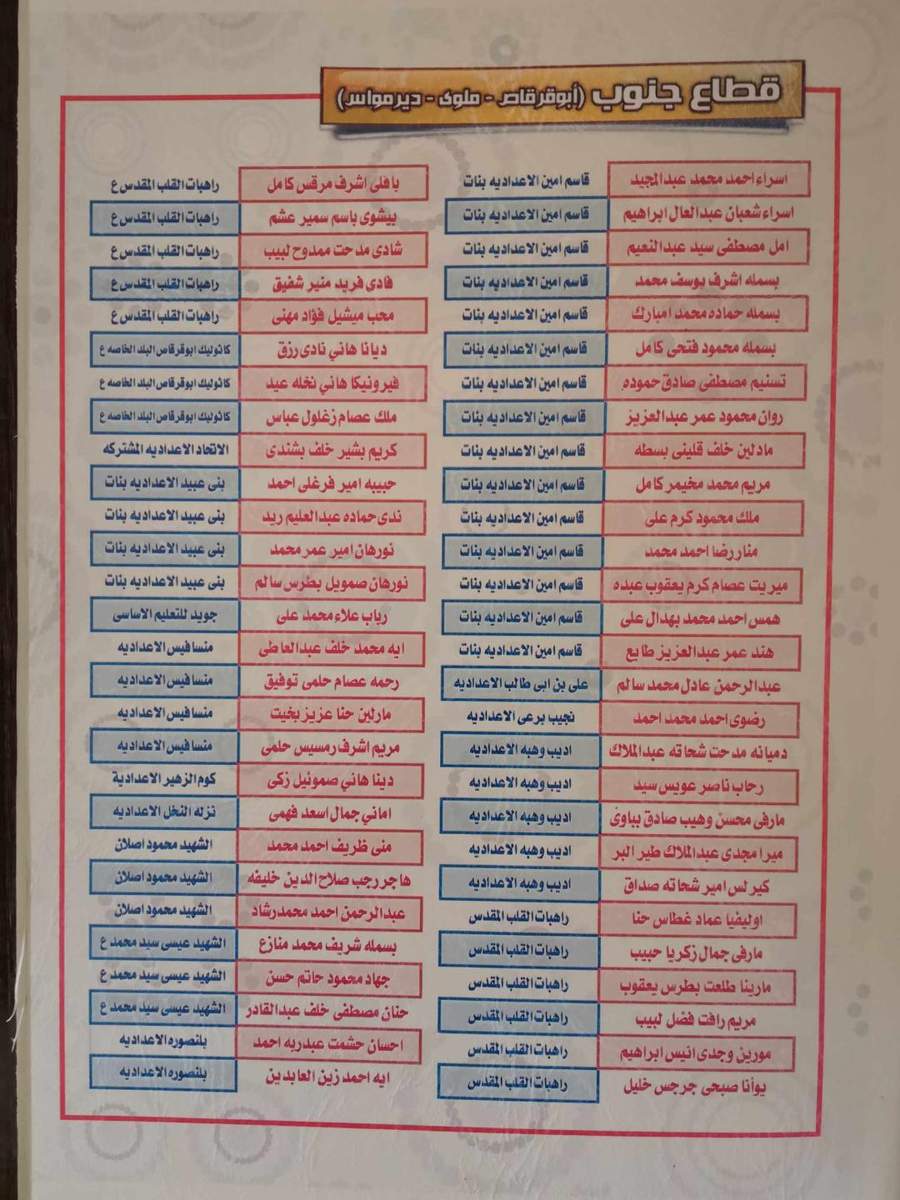 قطاع جنوب (أبوقرقاص - ملوى - ديرمواس)
اسراء احمد محمد عبدالمجيد قاسم امين الاعداديه بنات
اسراء شعبان عبدالعال ابراهيم قاسم امين الاعداديه بنات
امل مصطفى سيد عبدالنعيم قاسم امين الاعداديه بنات
بسمله اشرف يوسف محمد قاسم امين الاعداديه بنات
بسمله حماده محمد امبارك قاسم امين الاعداديه بنات
بسمله محمود فتحى كامل قاسم امين الاعداديه بنات
تسنيم مصطفى صادق حموده قاسم امين الاعداديه بنات
روان محمود عمر عبدالعزيز قاسم امين الاعداديه بنات
مادلين خلف قلينى بسطه قاسم امين الاعداديه بنات
مريم محمد مخيمر كامل قاسم امين الاعداديه بنات
ملك محمود كرم على قاسم امين الاعداديه بنات
منار رضا احمد محمد قاسم امين الاعداديه بنات
ميريت عصام كرم يعقوب عبده قاسم امين الاعداديه بنات
همس احمد محمد بهدال على قاسم امين الاعداديه بنات
هند عمر عبدالعزيز طايع قاسم امين الاعداديه بنات
عبدالرحمن عادل محمد سالم على بن ابى طالب الاعداديه
رضوى احمد محمد احمد نجيب برعى الاعداديه
دميانه مدحت شحاته عبدالملاك اديب وهبه الاعداديه
رحاب ناصر عويس سيد اديب وهبه الاعداديه
مارفى محسن وهيب صادق بباوى اديب وهبه الاعداديه
ميرا مجدى عبدالملاك طير البر اديب وهبه الاعداديه
كيرلس امير شحاته صداق اديب وهبه الاعداديه
اوليفيا عماد غطاس حنا راهبات القلب المقدس
مارفى جمال زكريا حبيب راهبات القلب المقدس
مارينا طلعت بطرس يعقوب راهبات القلب المقدس
مريم رافت فضل لبيب راهبات القلب المقدس
مورين وجدى انيس ابراهيم راهبات القلب المقدس
يوأنا صبحى جرجس خليل راهبات القلب المقدس
بافلى اشرف مرقس كامل راهبات القلب المقدس ع
بيشوى باسم سمير عشم راهبات القلب المقدس ع
شادى مدحت ممدوح لبيب راهبات القلب المقدس ع
فادى فريد منير شفيق راهبات القلب المقدس ع
محب ميشيل فؤاد مهنى راهبات القلب المقدس ع
ديانا هاني نادى رزق كاثوليك ابوقرقاص البلد الخاصه ع
فيرونيكا هاني نخله عيد كاثوليك ابوقرقاص البلد الخاصه ع
ملك عصام زغلول عباس كاثوليك ابوقرقاص البلد الخاصه ع
كريم بشير خلف بشندى الاتحاد الاعداديه المشتركه
حبيبه امير فرغلى احمد بنى عبيد الاعداديه بنات
ندى حماده عبدالعليم ريد بنى عبيد الاعداديه بنات
نورهان امير عمر محمد بنى عبيد الاعداديه بنات
نورهان صمويل بطرس سالم بنى عبيد الاعداديه بنات
رباب علاء محمد على جويد للتعليم الاساسى
ايه محمد خلف عبدالعاطى منسافيس الاعداديه
رحمه عصام حلمى توفيق منسافيس الاعداديه
مارلين حنا عزيز بخيت منسافيس الاعداديه
مريم اشرف رمسيس حلمى منسافيس الاعداديه
دينا هاني صموئيل زكى كوم الزهير الاعدادية
اماني جمال اسعد فهمى نزله النخل الاعداديه
منى ظريف احمد محمد الشهيد محمود اصلان
هاجر رجب صلاح الدين خليفه الشهيد محمود اصلان
عبدالرحمن احمد محمدرشاد الشهيد محمود اصلان
بسمله شريف محمد منازع الشهيد عيسى سيد محمد ع
جهاد محمود حاتم حسن الشهيد عيسى سيد محمد ع
حنان مصطفى خلف عبدالقادر الشهيد عيسى سيد محمد ع
احسان حشمت عبدربه احمد بلنصوره الاعداديه
ايه احمد زين العابدين بلنصوره الاعداديه